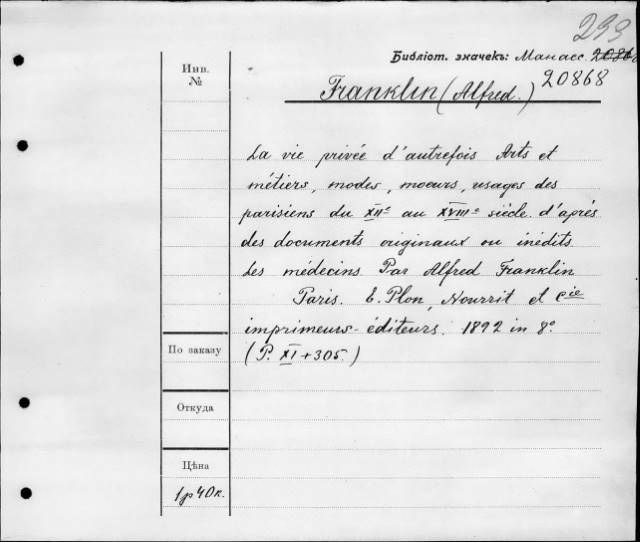 293
Библіот. значекъ: Манасс. 20868
20868
Инв.
№
Franklin (Alfred.)
La vie privée d'autrefois Arts et
métiers, modes, moeurs, usages des
parisiens du XIIe au XVIIIe siècle d'après
des documents originaux ou inédits
Les médecins Par Alfred Franklin
Paris. E. Plon, Nourrit et Cie
imprimeurs-éditeurs. 1892 in 8°
(P. XI + 305.)
По заказу
Откуда
Цѣна
1р 40к.